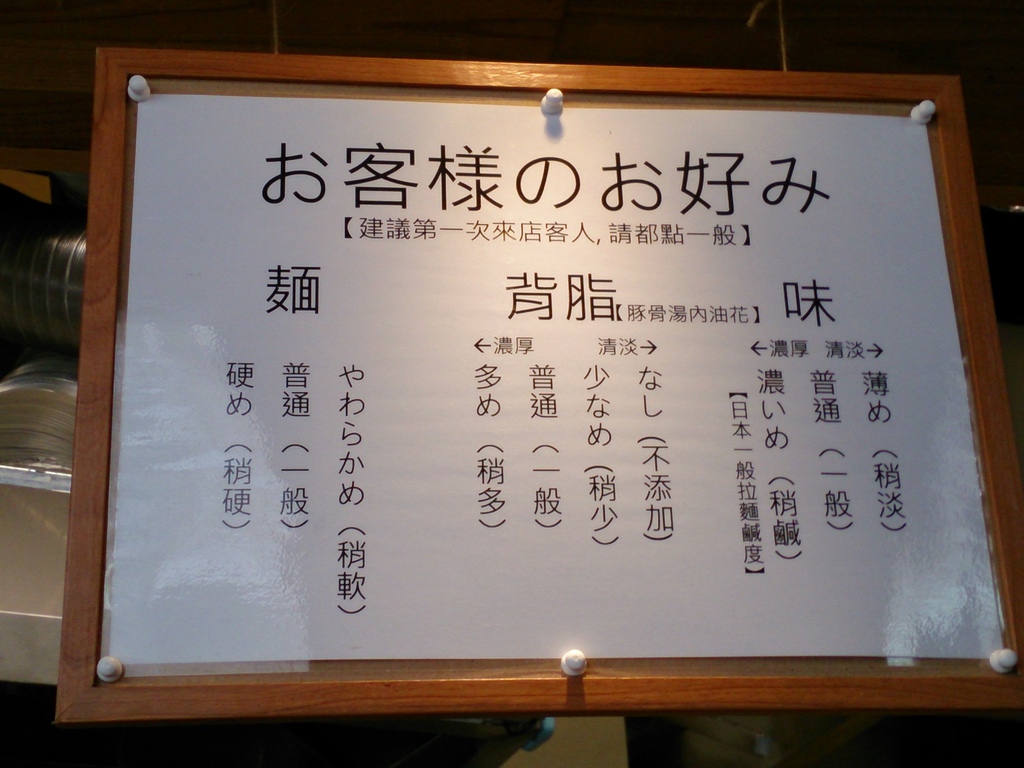 お客様のお好み
【建議第一次來店客人,請都點一般】
麺
やわらかめ（稍軟）
普通（一般）
硬め（稍硬）
背脂【豚骨湯內油花】
←濃厚 清淡→
なし（不添加）
少なめ（稍少）
普通（一般）
多め（稍多）
味
←濃厚 清淡→
薄め（稍淡）
普通（一般）
濃いめ（稍鹹）
【日本一般拉麵鹹度】